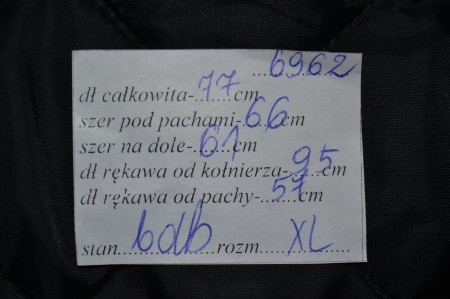 ...6962
dł całkowita-.77.cm
szer pod pachami-.66.cm
szer na dole-.61.cm
dł rękawa od kołnierza-.95.cm
dł rękawa od pachy-.57.cm
stan...bdb...rozm...XL...